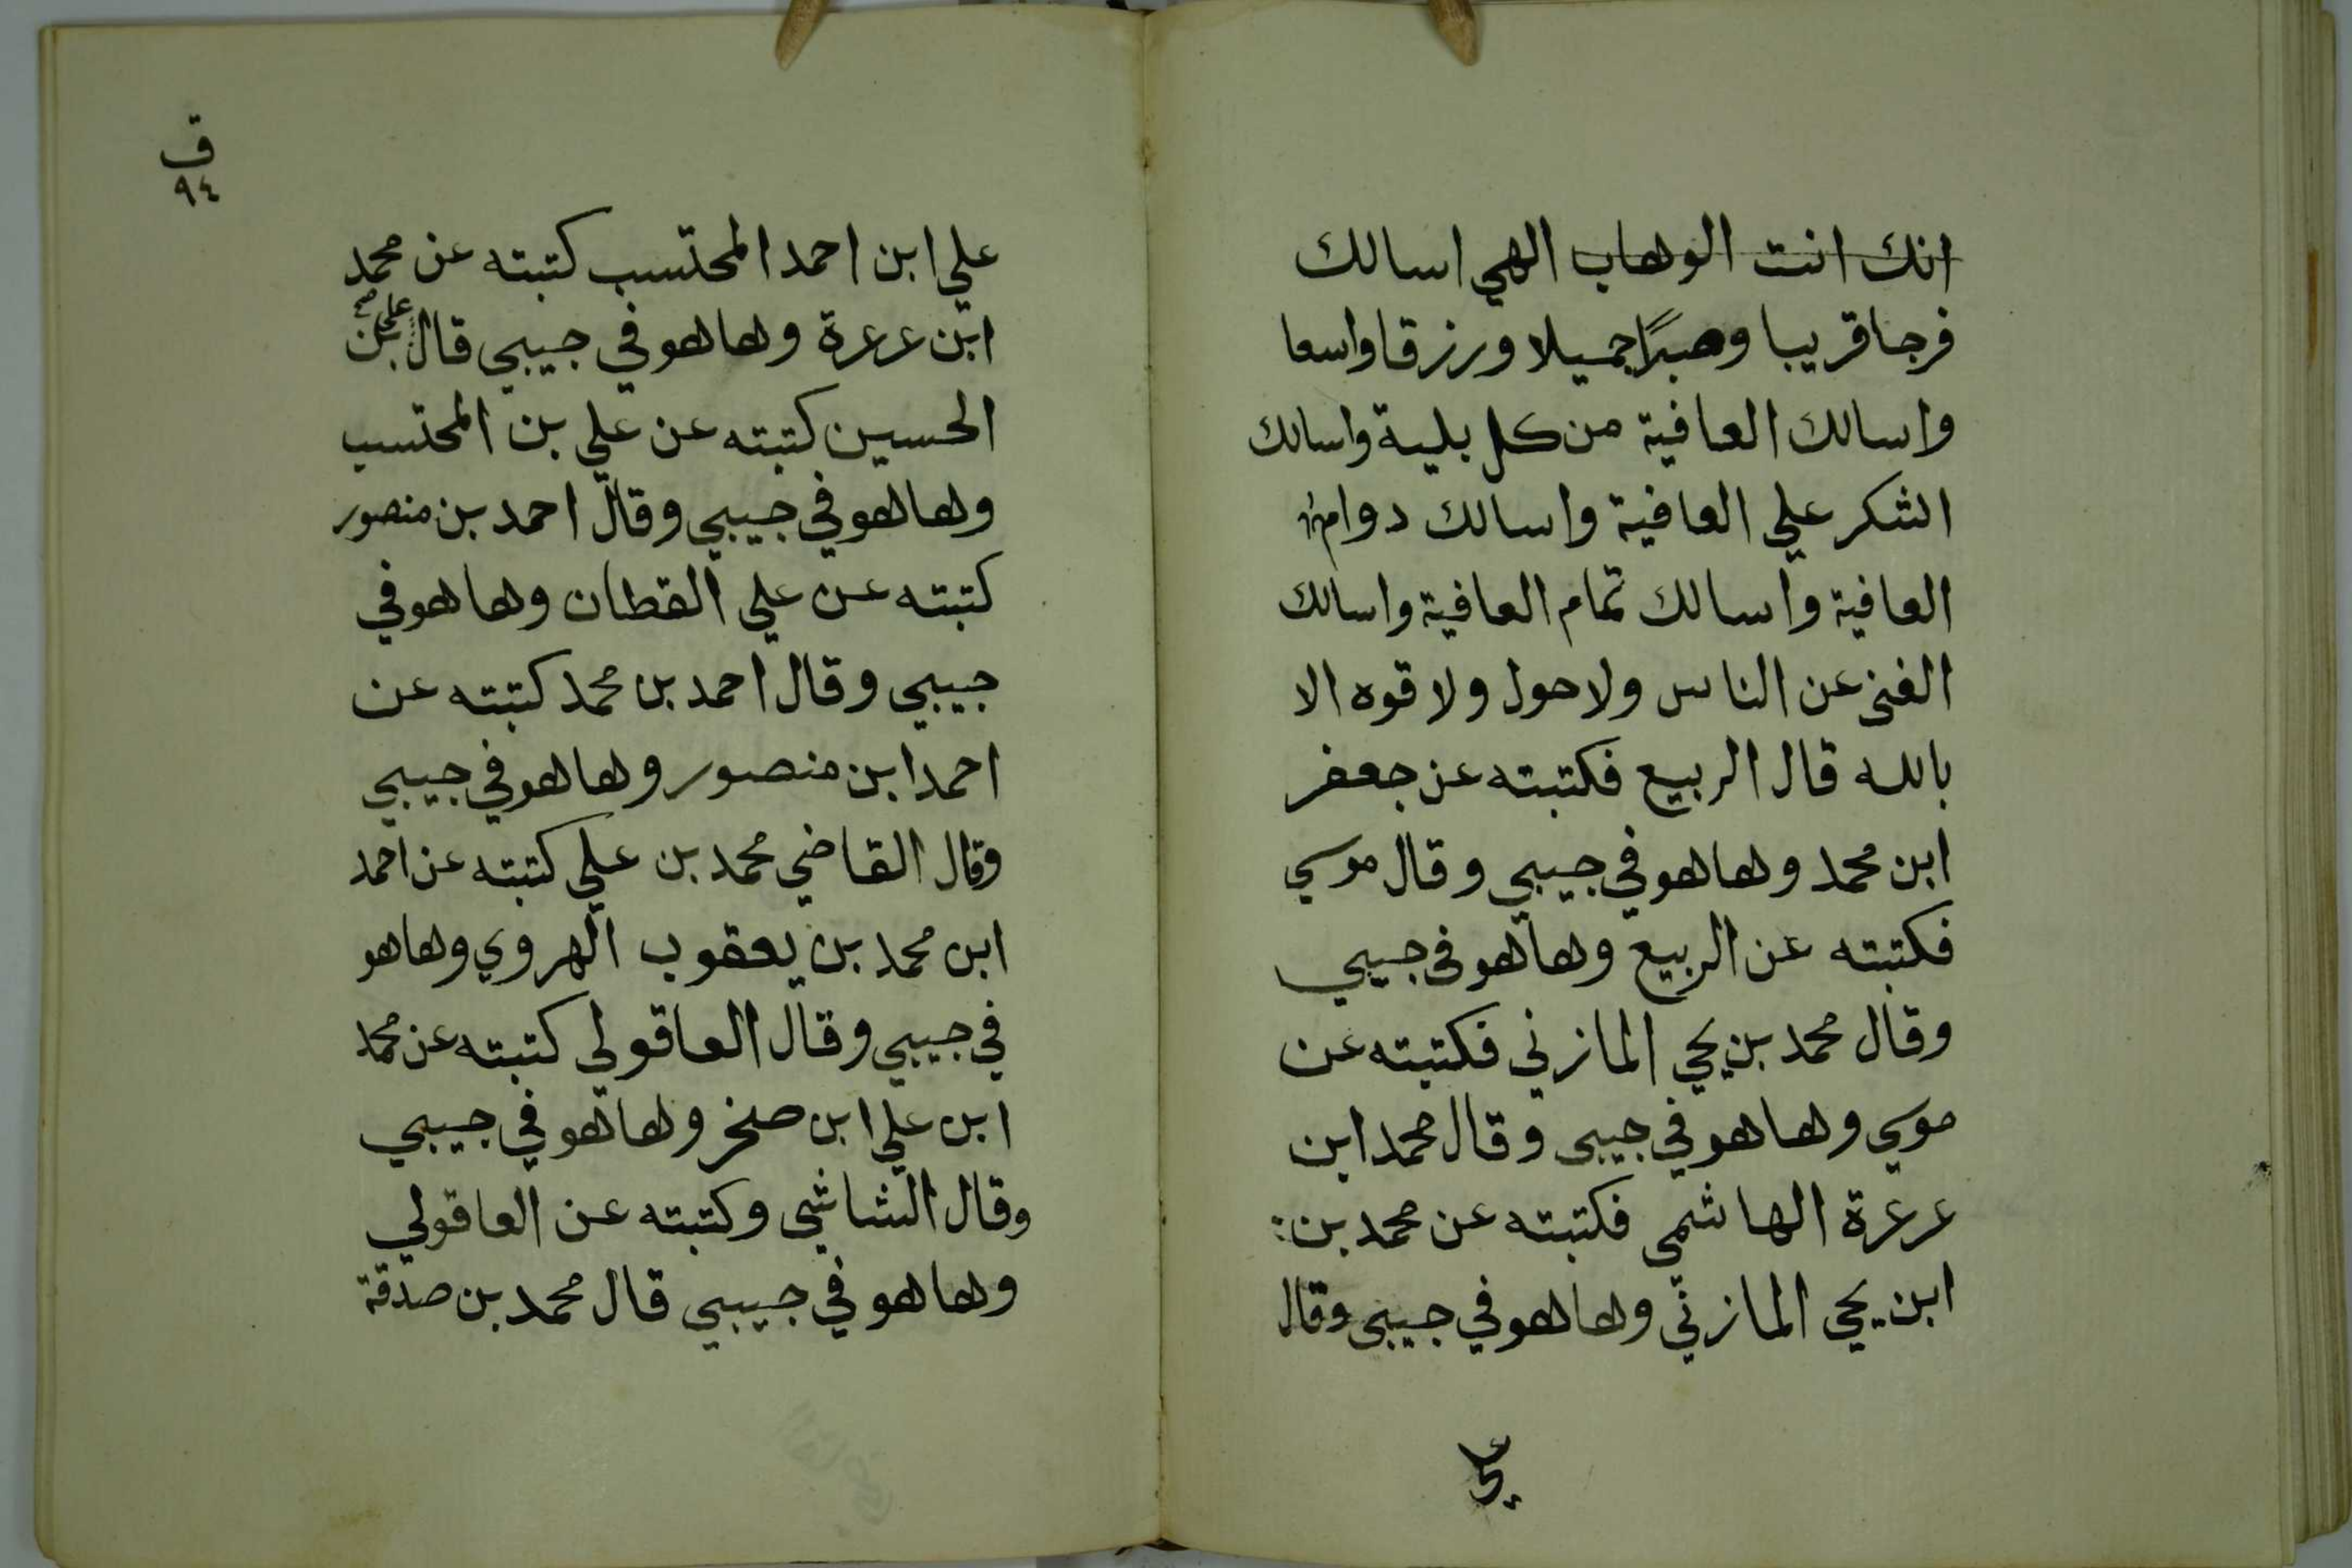 انك انت الوهاب الهي اسالك
فرجا قريبا وصبرًا جميلا ورزقا واسعا
واسالك العافية من كل بلية واسالك
الشكر علي العافية واسالك دوام
العافية واسالك تمام العافية واسالك
الغنى عن الناس ولا حول ولا قوه الا
بالله قال الربيع فكتبته عن جعفر
ابن محمد وها هو في جيبي وقال موسي
فكتبته عن الربيع وها هو في جيبي
وقال محمد بن يحي المازني فكتبته عن
موسي وها هو في جيبي وقال محمد ابن
عرعرة الهاشمي فكتبته عن محمد بن:
ابن يحي المازني وها هو في جيبي وقال
علي
ق
٩٤
علي ابن احمد المحتسب كتبته عن محمد
ابن عرعرة وها هو في جيبي قال علي بن
الحسين كتبته عن علي بن المحتسب
وها هو في جيبي وقال احمد بن منصور
كتبته عن علي القطان وها هو في
جيبي وقال احمد بن محمد كتبته عن
احمد ابن منصور وها هو في جيبي
وقال القاضي محمد بن علي كتبته عن احمد
ابن محمد بن يعقوب الهروي وها هو
في جيبي وقال العاقولي كتبته عن محمد
ابن علي ابن صخر وها هو في جيبي
وقال الشاشي وكتبته عن العاقولي
وها هو في جيبي قال محمد بن صدقة